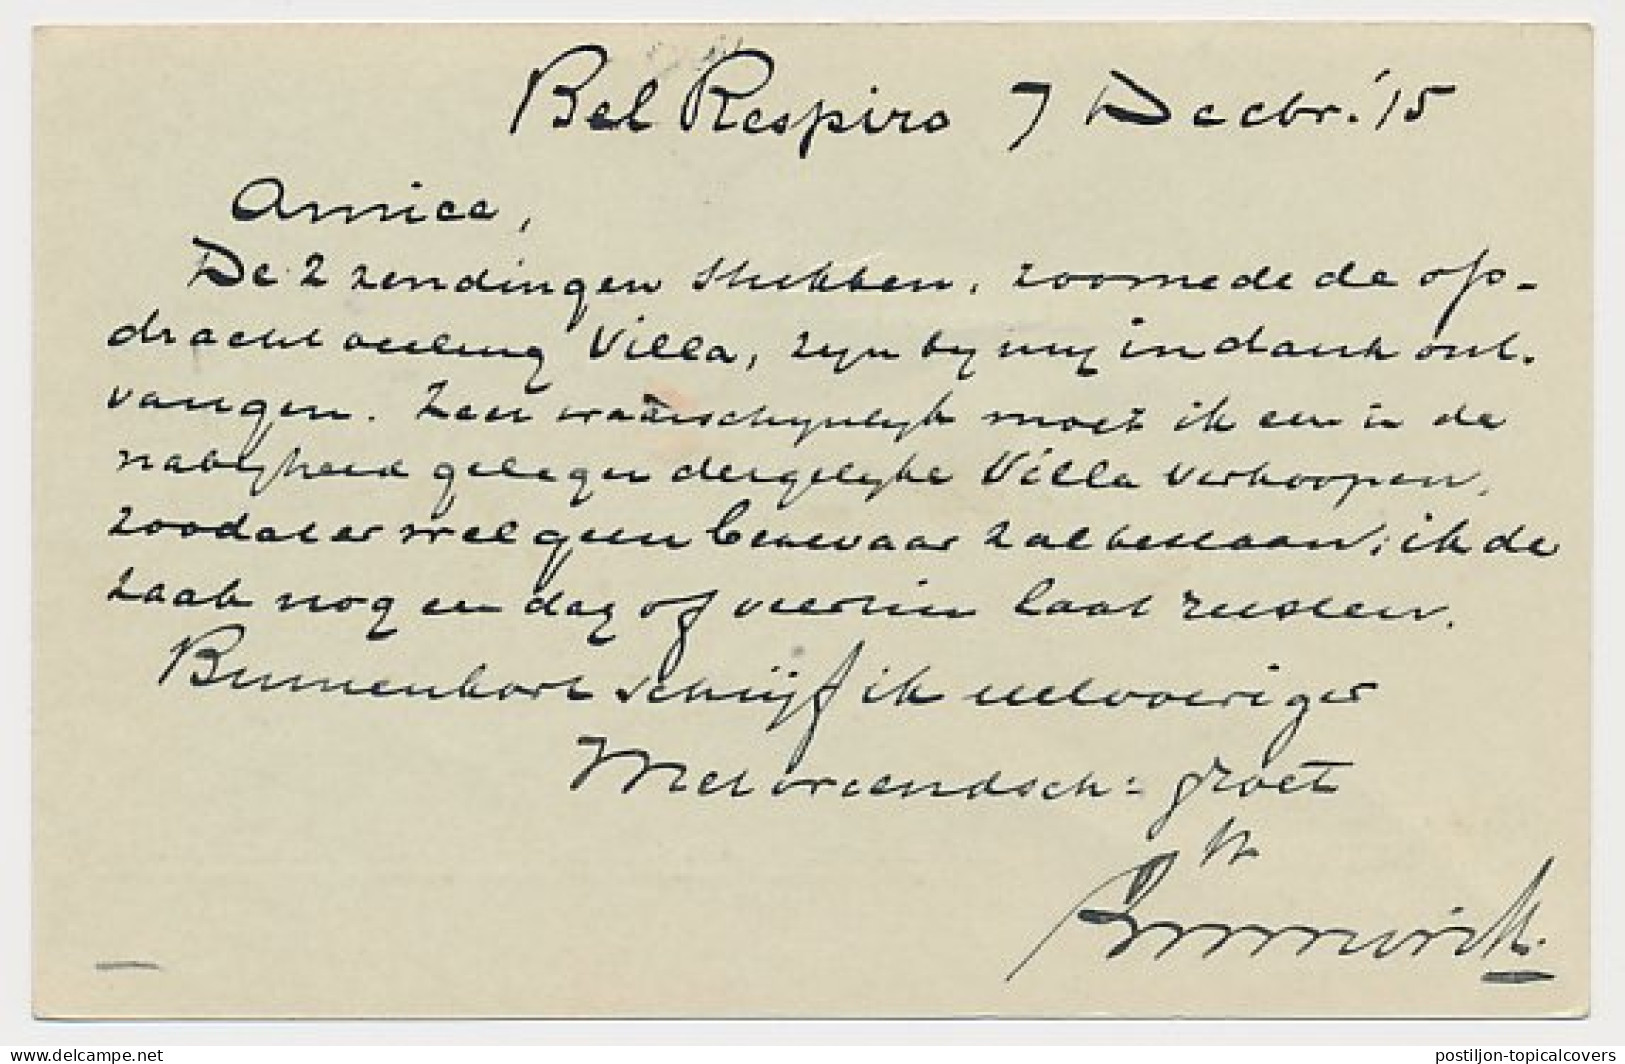 Bel Respiro 7 Decbr. '15
Amice,
De 2 zendingen stukken, zoomede de op-
dracht veiling Villa, zijn bij mij in dank ont-
vangen. Zeer waarschynlyk moet ik een in de
nabijheid gelegen dergelyke Villa verkoopen,
zoodat er wel geen bezwaar zal bestaan, ik de
zaak nog en dag of veertien laat rusten.
Binnenkort schrijf ik uitvoeriger
Met vriendsch: groet
tt
delcampe.net
postiljon-topicalcovers